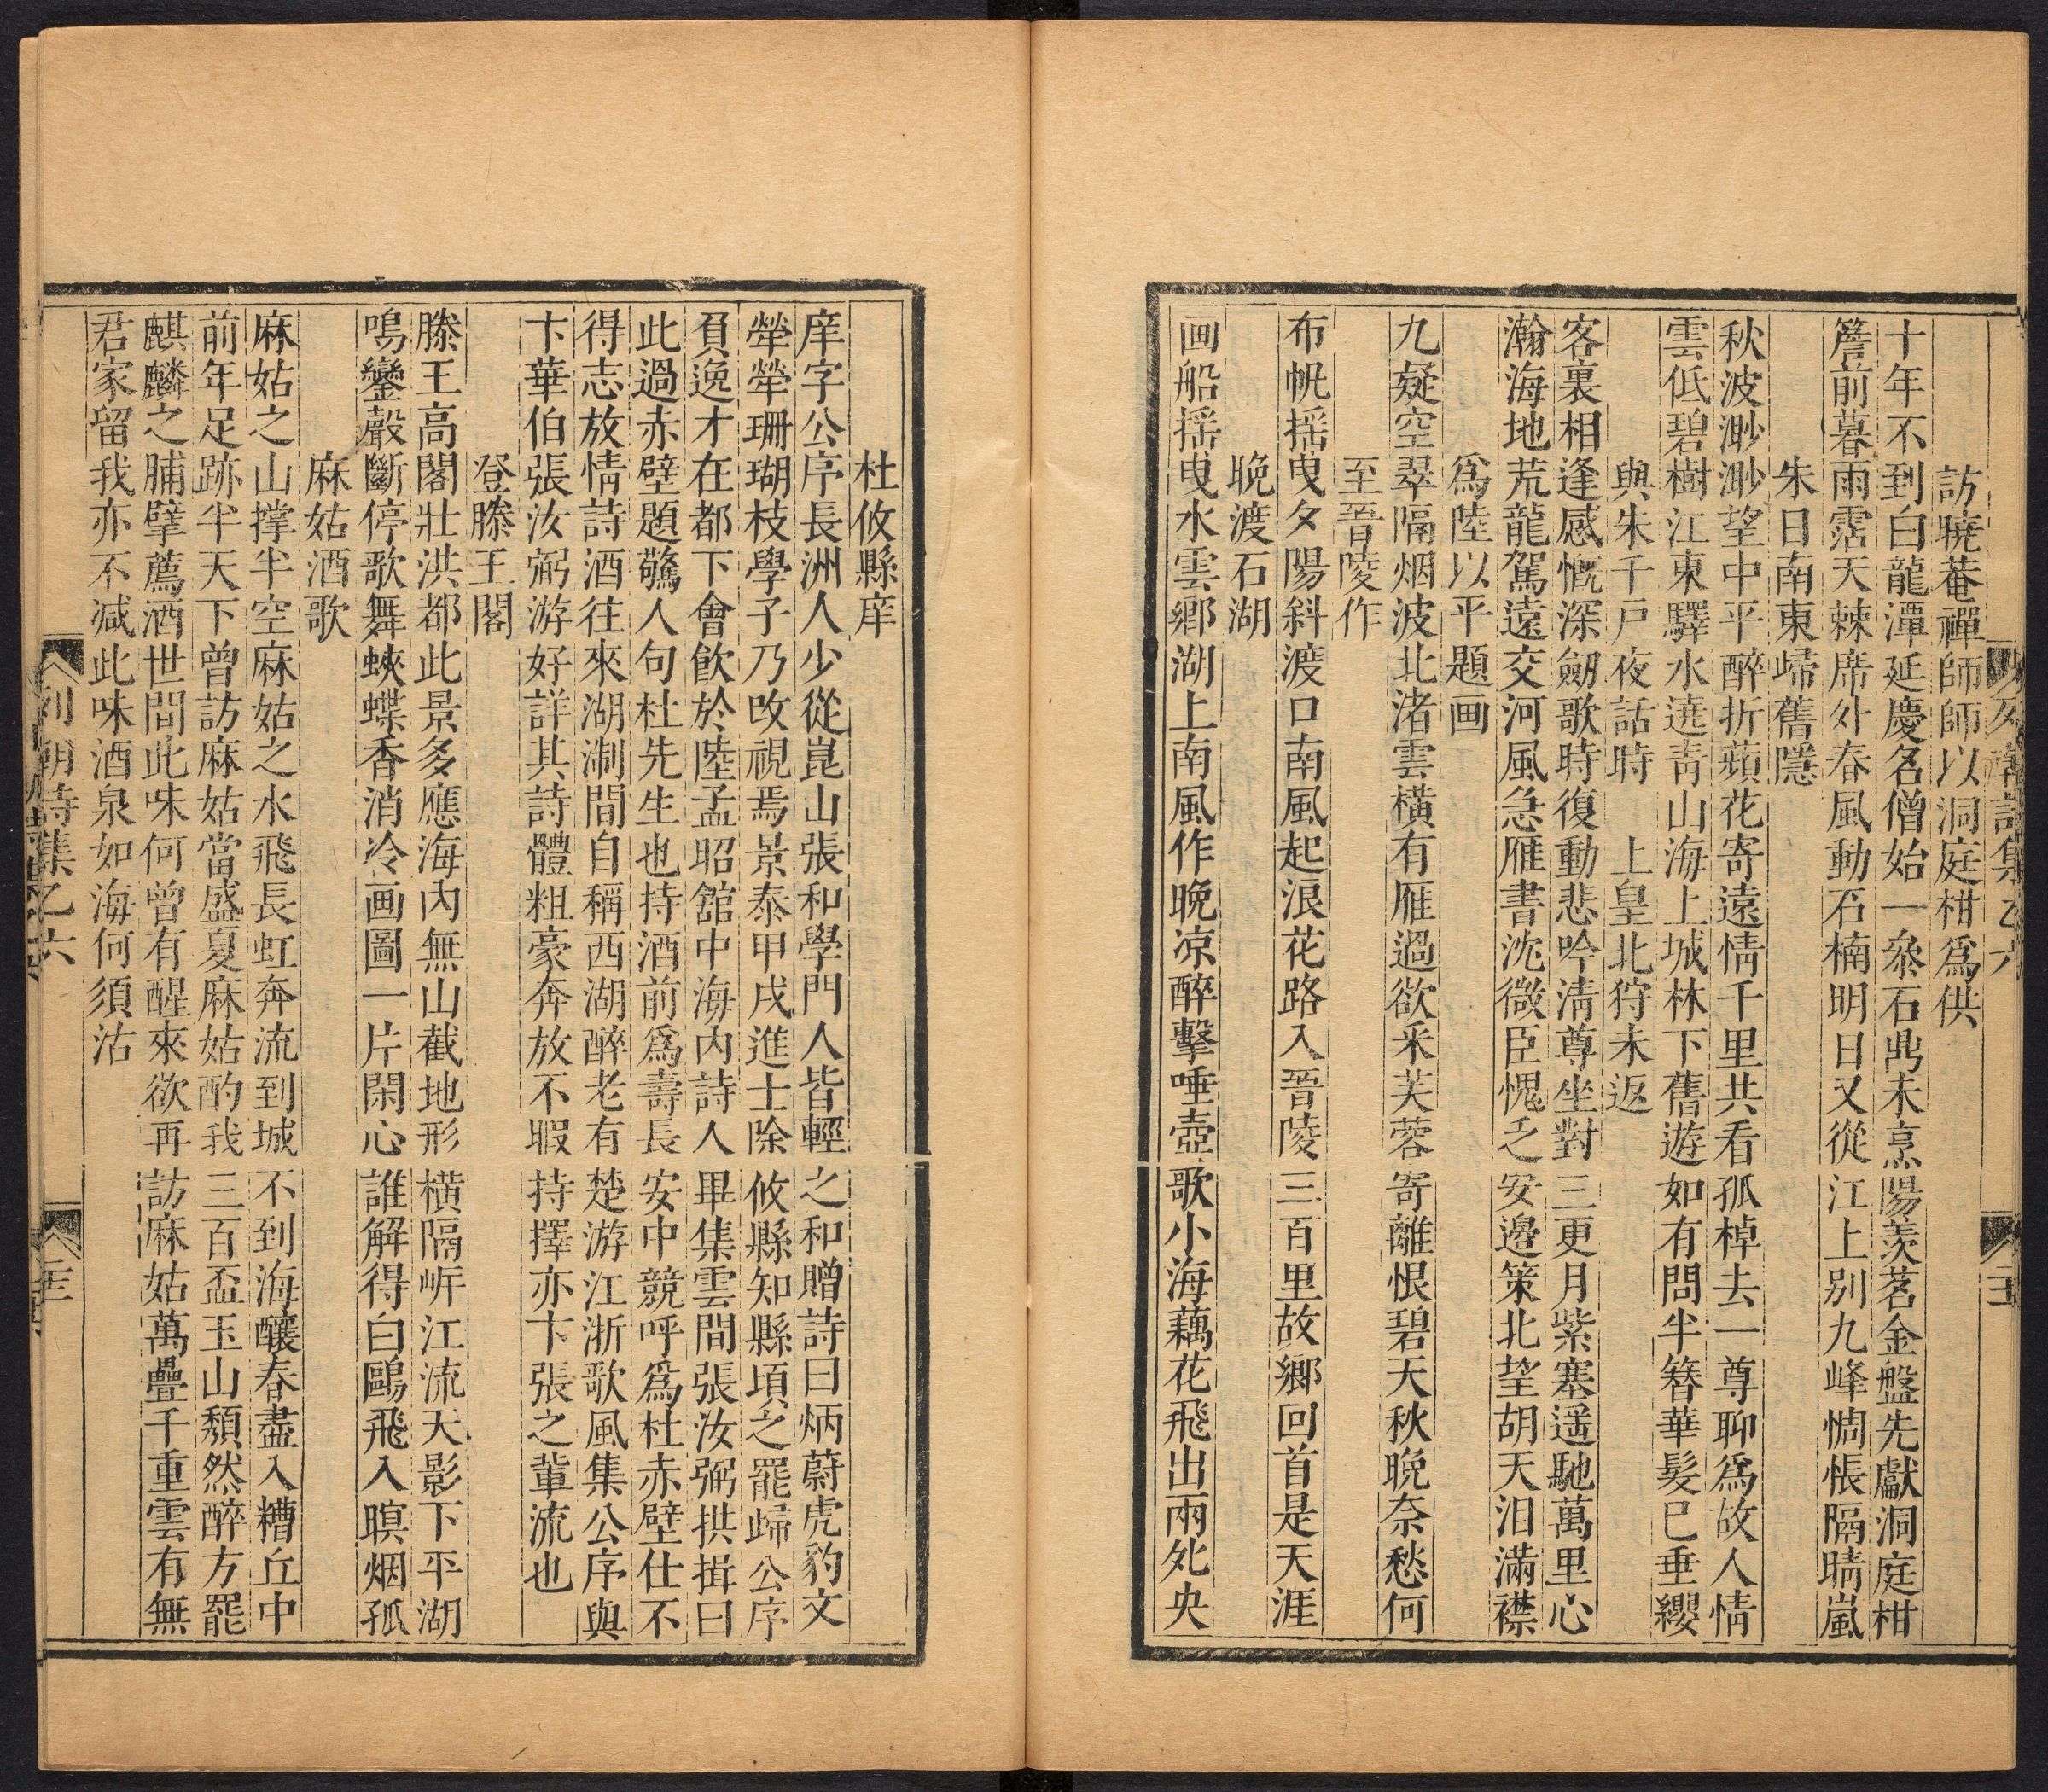 訪曉菴禪師師以洞庭柑爲供
十年不到白龍潭延慶名僧始一叅石鼎未烹陽羨茗金盤先獻洞庭柑
簷前暮雨霑天棘席外春風動石楠明日又從江上别九峰惆悵隔晴嵐
朱日南東歸舊隱
秋波渺渺望中平醉折蘋花寄遠情千里共看孤棹去一尊聊爲故人情
雲低碧樹江東驛水遶青山海上城林下舊遊如有問半簪華髮巳垂纓
與朱千戸夜話時　上皇北狩未返
客裏相逢感慨深劒歌時復動悲吟淸尊坐對三更月紫塞遥馳萬里心
瀚海地荒龍駕遠交河風急雁書沈微臣愧乏安邉策北望胡天泪滿襟
爲陸以平題画
九疑空翠隔烟波北渚雲橫有雁過欲采芙蓉寄離恨碧天秋晚奈愁何
至晉陵作
布帆揺曳夕陽斜渡口南風起浪花路入晉陵三百里故鄉回首是天涯
晩渡石湖
画船揺曳水雲鄉湖上南風作晚凉醉擊唾壺歌小海藕花飛出兩夗央
杜攸縣庠
庠字公序長洲人少從崑山張和學門人皆輕之和贈詩曰炳蔚虎豹文
犖犖珊瑚枝學子乃改視焉景泰甲戌進士除攸縣知縣頃之罷歸公序
負逸才在都下會飲於陸孟昭舘中海內詩人畢集雲間張汝弼拱揖曰
此過赤壁題驚人句杜先生也持酒前爲壽長安中競呼爲杜赤壁仕不
得志放情詩酒往來湖淛間自稱西湖醉老有楚游江浙歌風集公序與
卞華伯張汝弼游好詳其詩體粗豪奔放不暇持擇亦卞張之軰流也
登滕王閣
滕王高閣壯洪都此景多應海內無山截地形橫隔㟁江流天影下平湖
鳴鑾聲斷停歌舞蛺蝶香消冷画圖一片閑心誰解得白鷗飛入暝烟孤
麻姑酒歌
麻姑之山撑半空麻姑之水飛長虹奔流到城不到海釀春盡入糟丘中
前年足跡半天下曾訪麻姑當盛夏麻姑酌我三百盃玉山頽然醉方罷
麒麟之脯擘薦酒世間此味何曾有醒來欲再訪麻姑萬疊千重雲有無
君家留我亦不减此味酒泉如海何須沽
列朝詩集乙六